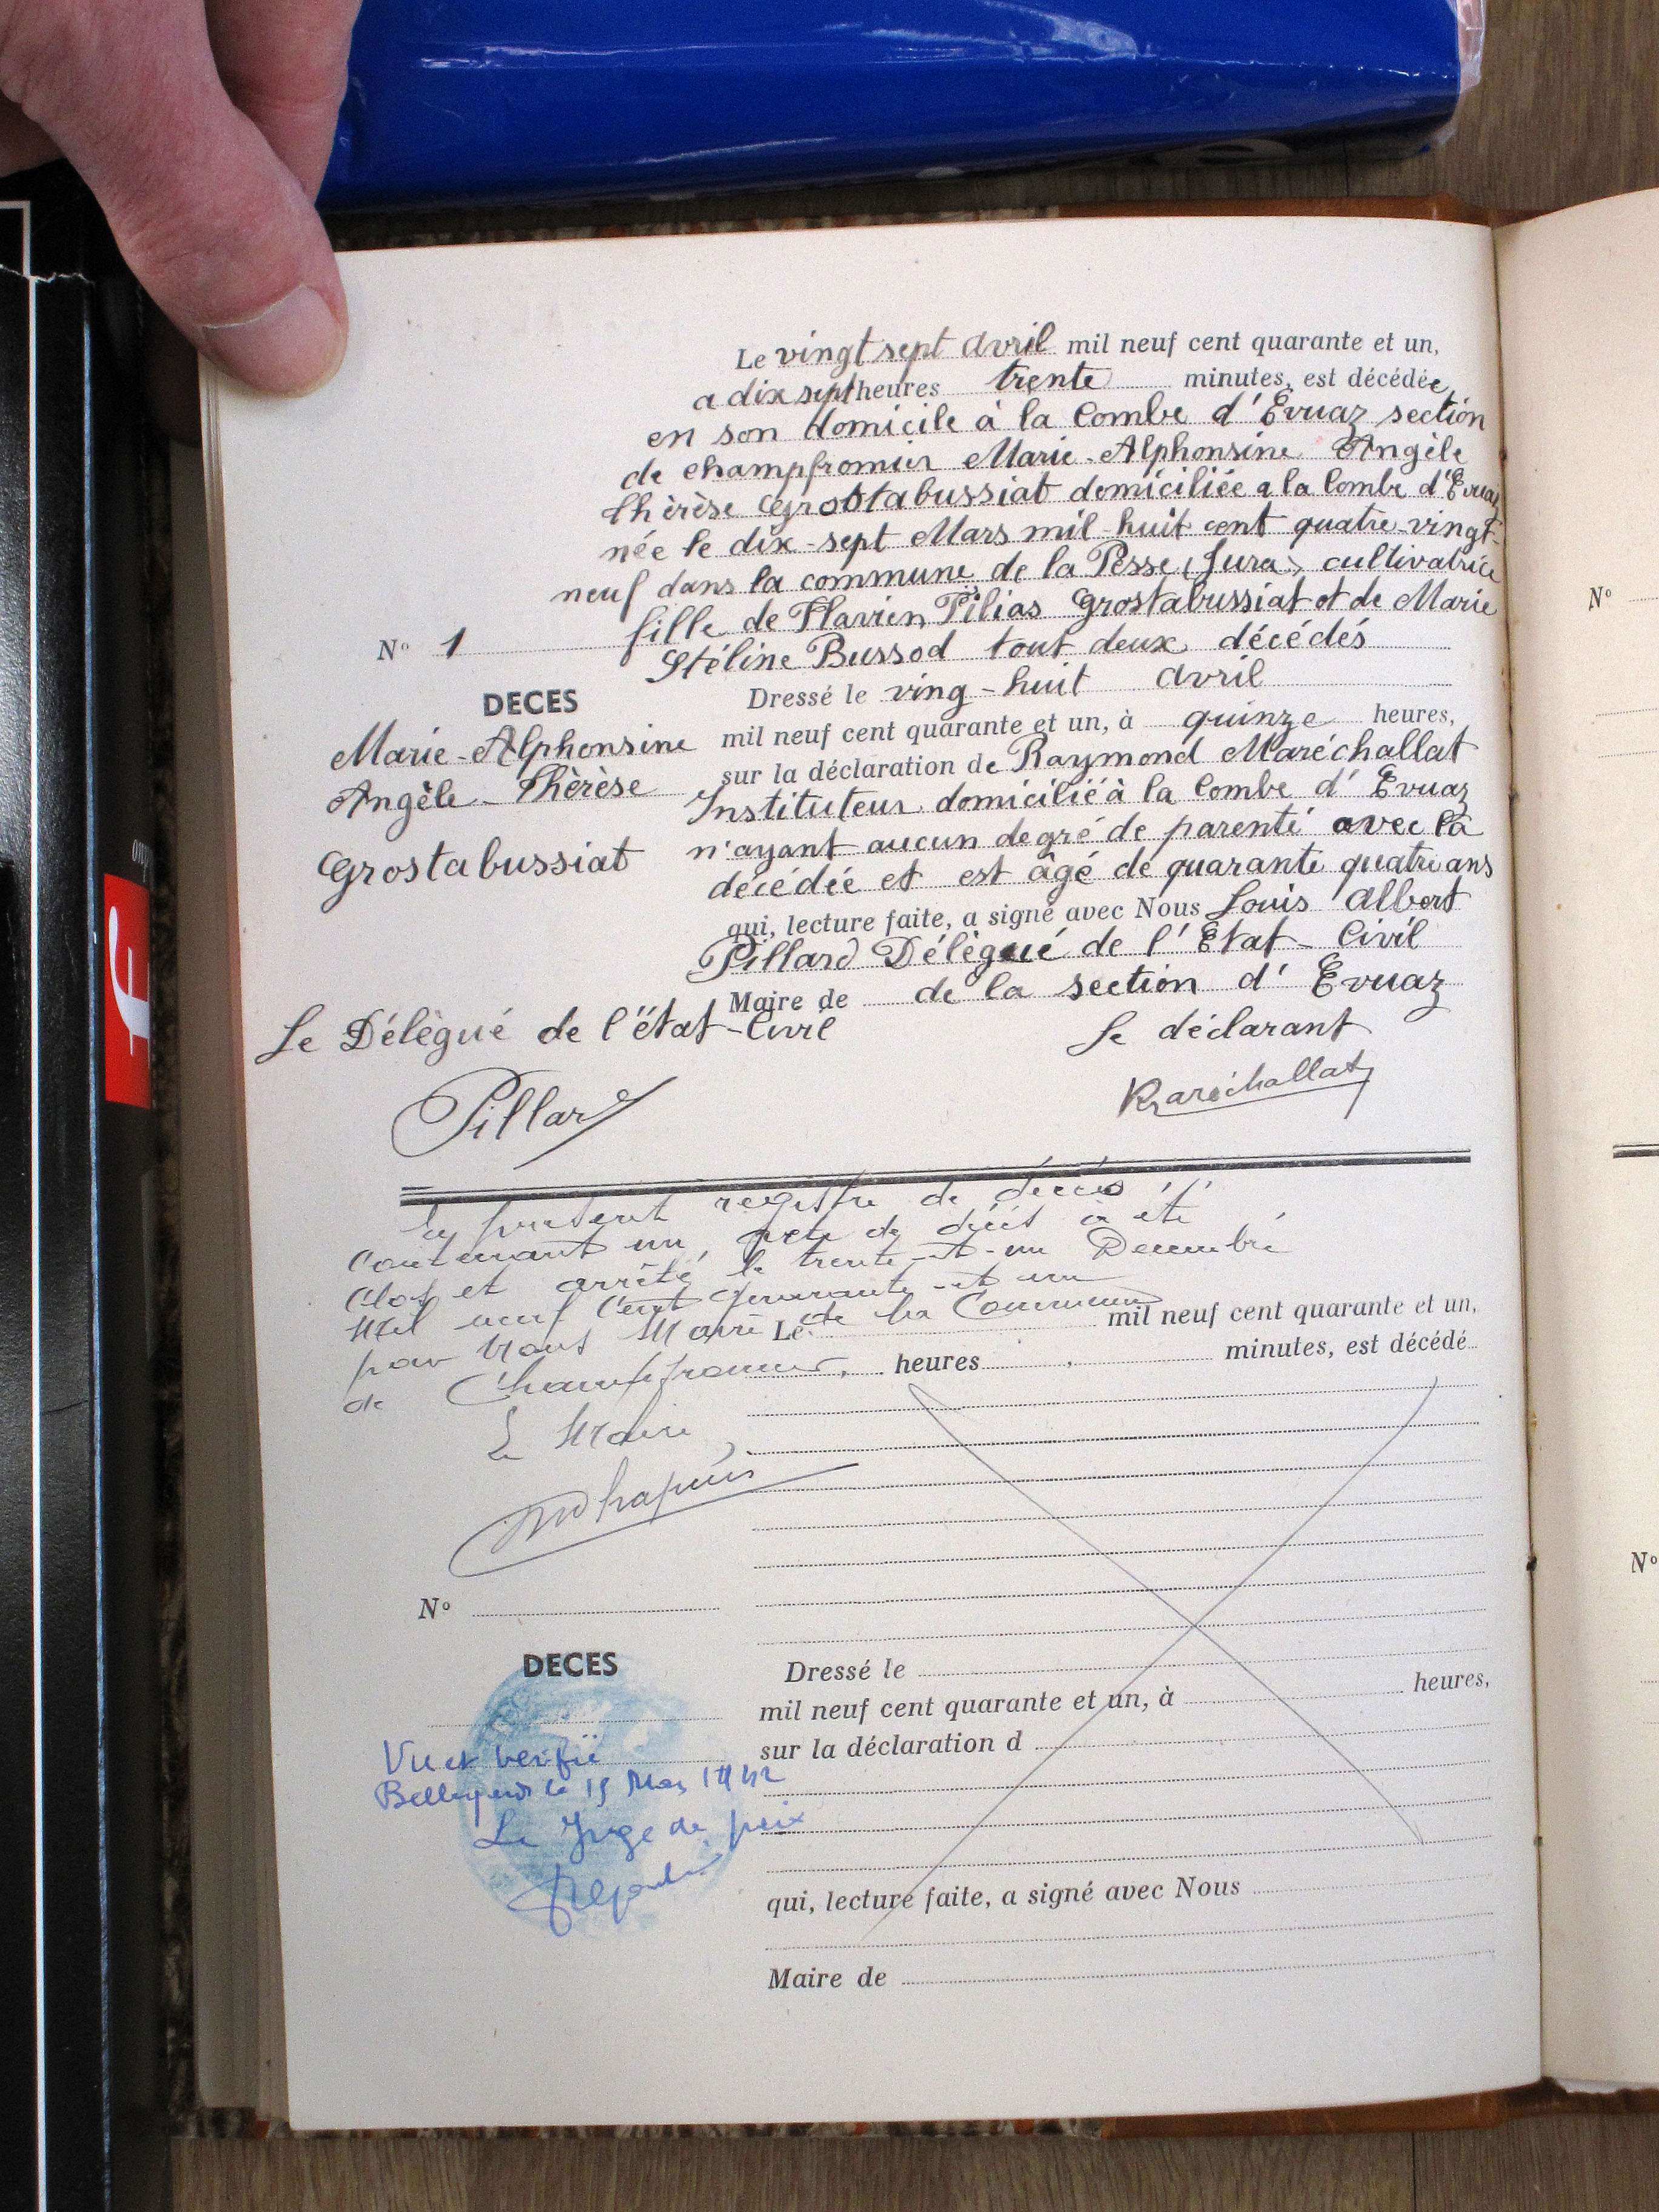 Le vingt sept avril mil neuf cent quarante et un,
a dix sept heures trente minutes, est décédée
en son domicile à la Combe d'Evuaz section
de champfromier Marie-Alphonsine Angèle
thérèse Grostabussiat domiciliée a la Combe d'Evuaz
née le dix-sept Mars mil-huit cent quatre-vingt-
neuf dans la commune de la Pesse (Jura), cultivatrice
fille de Flavien Pilias Grostabussiat et de Marie
Stéline Bussod tout deux décédés
N° 1
DECES
Marie-Alphonsine
Angèle-Thérèse
Grostabussiat
Dressé le ving-huit avril
mil neuf cent quarante et un, à quinze heures,
sur la déclaration de Raymond Maréchallat
Instituteur domicilié à la Combe d'Evuaz
n'ayant aucun degré de parenté avec la
décédée et est âgé de quarante quatre ans
qui, lecture faite, a signé avec Nous Louis Albert
Pillard Délégué de l'Etat-Civil
Maire de de la section d'Evuaz
Le Délégué de l'état-Civil
Le déclarant
Pillard
Maréchallat
Le présent registre de décès
Contenant un acte de décès a été
Clos et arrêté le trente-et-un Decembre
Mil neuf Cent quarante-et un
par Nous Maire de la Commune
de Champfromier.
Le Maire
Le mil neuf cent quarante et un,
heures minutes, est décédé
N°
DECES
Dressé le
mil neuf cent quarante et un, à heures,
sur la déclaration d
Vu et verifié
Bellegarde le 15 Mai 1942
Le Juge de paix
qui, lecture faite, a signé avec Nous
Maire de
N°
N°